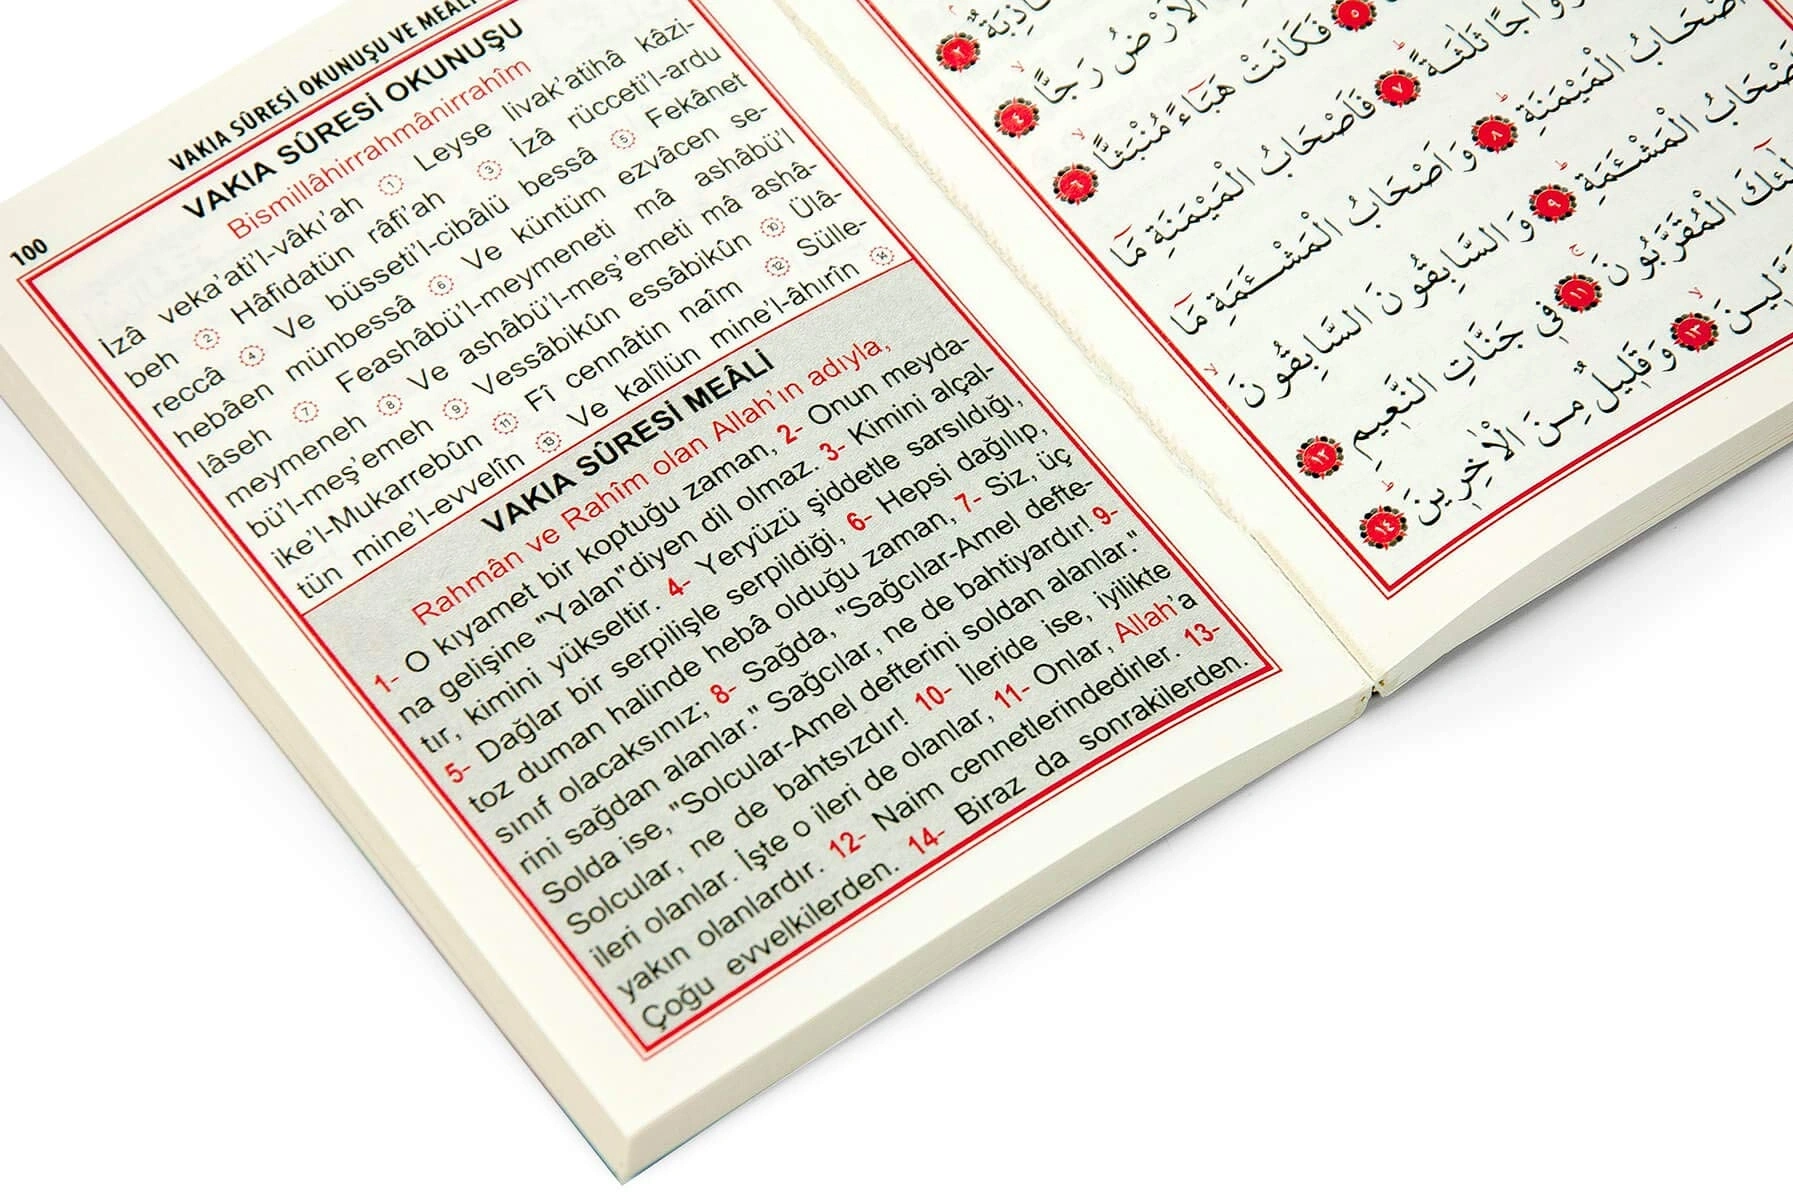 100
VAKIA SÛRESİ OKUNUŞU VE MEALİ
VAKIA SÛRESİ OKUNUŞU
Bismillâhirrahmânirrahîm
İzâ veka'ati'l-vâkı'ah 1 Leyse livak'atihâ kâzi-
beh 2 Hâfidatün râfi'ah 3 İzâ rücceti'l-ardu
reccâ 4 Ve büsseti'l-cibâlü bessâ 5 Fekânet
hebâen münbessâ 6 Ve küntüm ezvâcen se-
lâseh 7 Feashâbü'l-meymeneti mâ ashâbü'l
meymeneh 8 Ve ashâbü'l-meş'emeti mâ ashâ-
bü'l-meş'emeh 9 Vessâbikûn essâbikûn 10 Ülâ-
ike'l-Mukarrebûn 11 Fî cennâtin naîm 12 Sülle-
tün mine'l-evvelîn 13 Ve kalîlün mine'l-âhırîn 14
VAKIA SÛRESİ MEÂLİ
Rahmân ve Rahîm olan Allah'ın adıyla,
1- O kıyamet bir koptuğu zaman, 2- Onun meyda-
na gelişine "Yalan"diyen dil olmaz. 3- Kimini alçal-
tır, kimini yükseltir. 4- Yeryüzü şiddetle sarsıldığı,
5- Dağlar bir serpilişle serpildiği, 6- Hepsi dağılıp,
toz duman halinde hebâ olduğu zaman, 7- Siz, üç
sınıf olacaksınız; 8- Sağda, "Sağcılar-Amel defte-
rini sağdan alanlar." Sağcılar, ne de bahtiyardır! 9-
Solda ise, "Solcular-Amel defterini soldan alanlar."
Solcular, ne de bahtsızdır! 10- İleride ise, iyilikte
ileri olanlar. İşte o ileri de olanlar, 11- Onlar, Allah'a
yakın olanlardır. 12- Naim cennetlerindedirler. 13-
Çoğu evvelkilerden. 14- Biraz da sonrakilerden.
٣
الْاَرْضُ رَجًّا ٤
٥ فَكَانَتْ هَبَٓاءً مُنْبَثًّا ٦
ثَلٰثَةً ٧ فَاَصْحَابُ الْمَيْمَنَةِ مَٓا
اَصْحَابُ الْمَيْمَنَةِ ٨ وَاَصْحَابُ الْمَشْـَٔمَةِ مَٓا
اَصْحَابُ الْمَشْـَٔمَةِ ٩ وَالسَّابِقُونَ السَّابِقُونَ
الْمُقَرَّبُونَ ١١ ف۪ي جَنَّاتِ النَّع۪يمِ ١٢
١٣ وَقَل۪يلٌ مِنَ الْاٰخِر۪ينَ ١٤